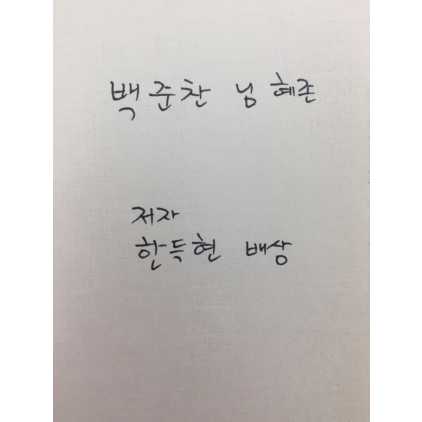 백준찬 님 혜존
저자
한득현 배상